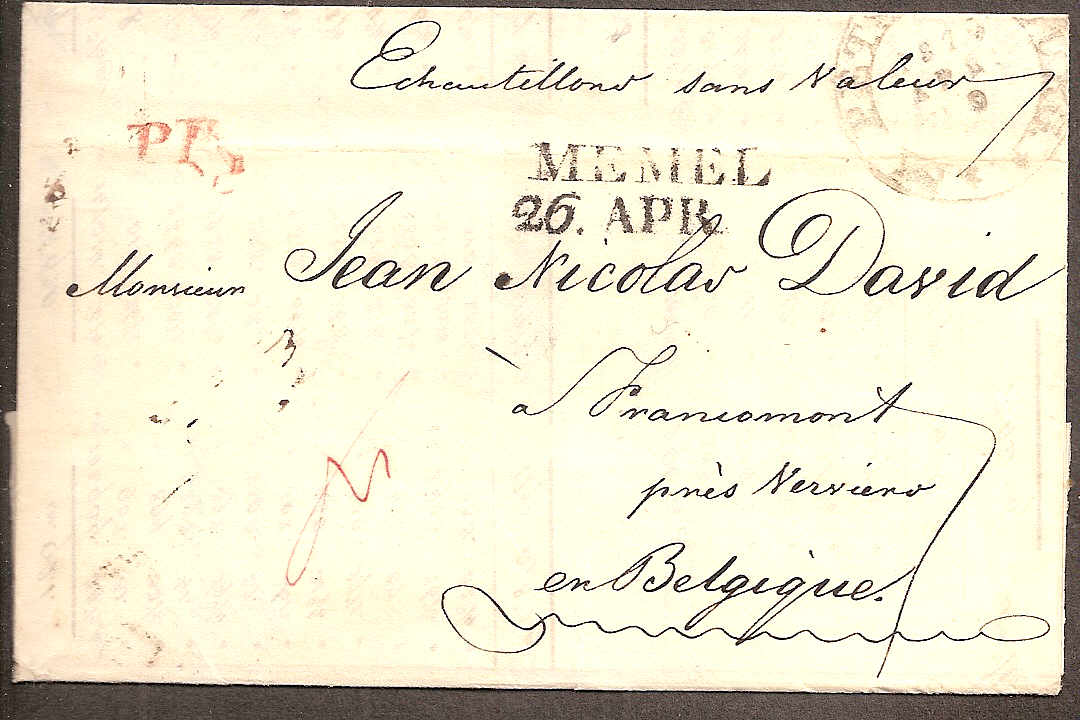 Echantillons sans Valeur
MEMEL
26. APR
Monsieur Jean Nicolas David
à Francomont
près Verviers
en Belgique.